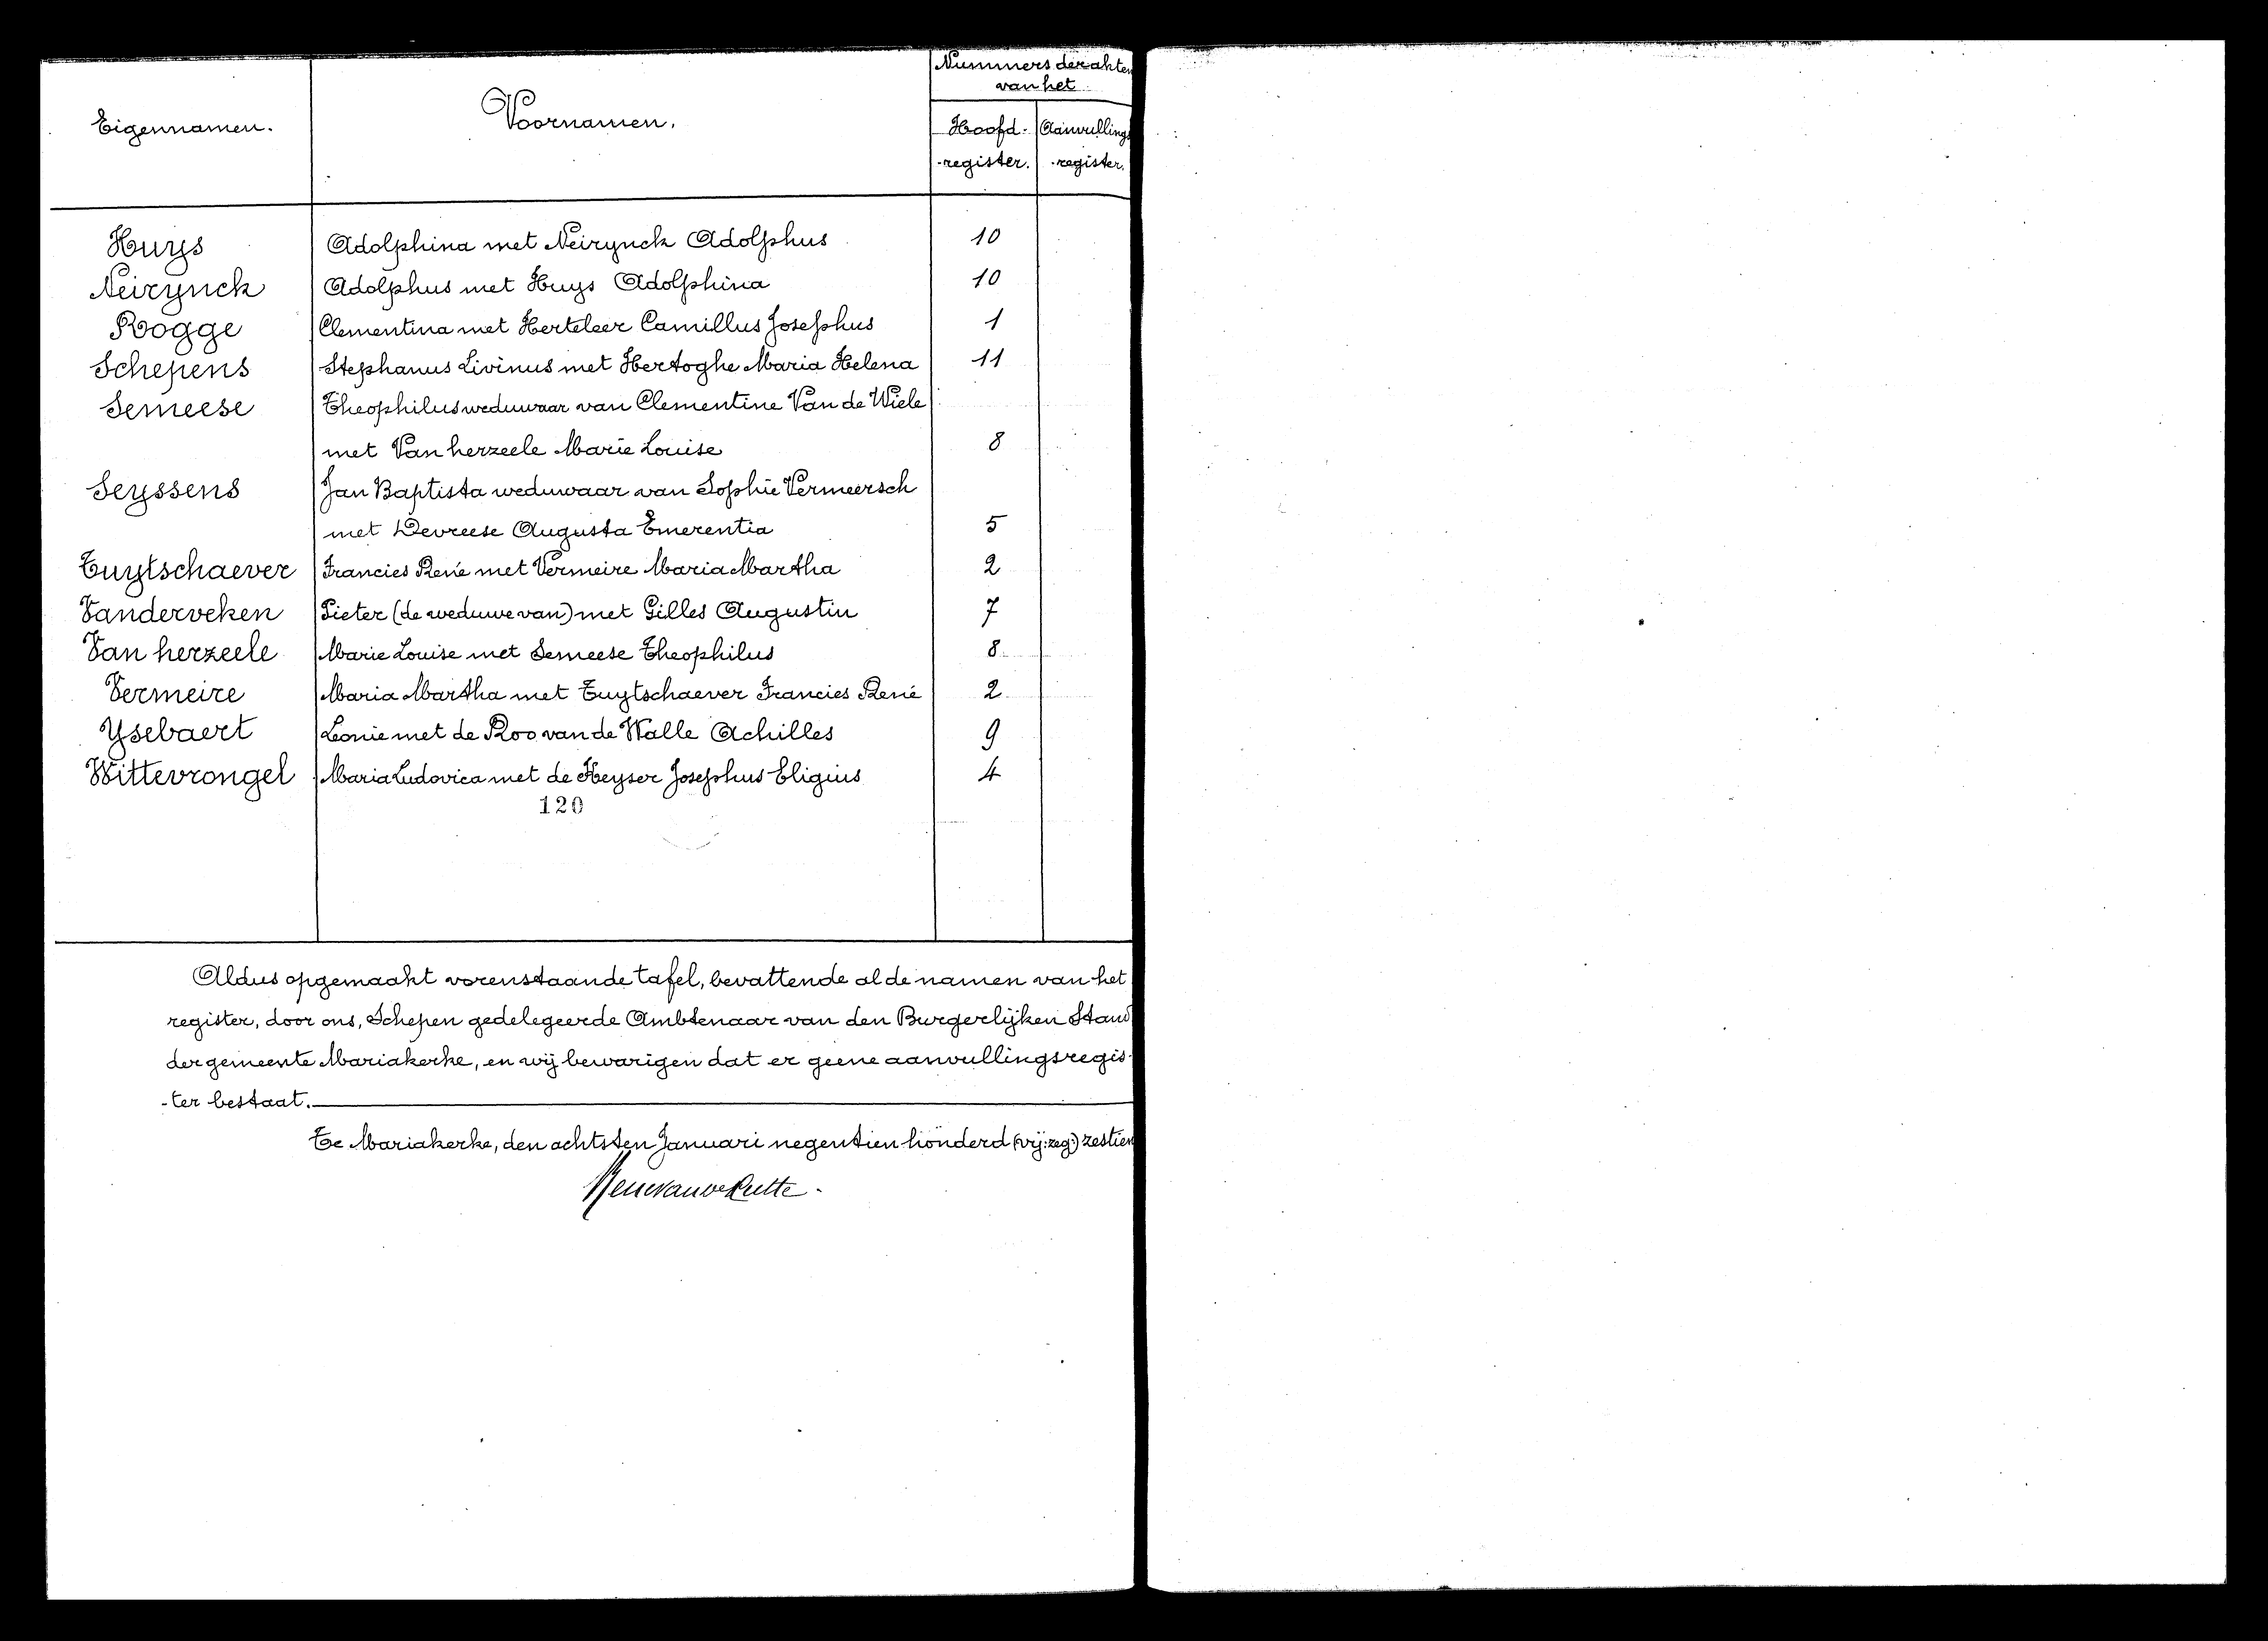 Nummers der akten
van het
Eigennamen.
Voornamen.
Hoofd-
Aanvullings
-register.
-register.
Huys Adolphina met Neirynck Adolphus 10
Neirynck Adolphus met Huys Adolphina 10
Rogge Clementina met Herteleer Camillus Josephus 1
Schepens Stephanus Livinus met Hertoghe Maria Helena 11
Semeese Theophilus weduwaar van Clementine Van de Wiele
met Van herzeele Marie Louise 8
Seyssens Jan Baptista weduwaar van Sophie Vermeersch
met Devreese Augusta Emerentia 5
Tuytschaever Francies René met Vermeire Maria Martha 2
Vanderveken Pieter (de weduwe van) met Gilles Augustin 7
Van herzeele Marie Louise met Semeese Theophilus 8
Vermeire Maria Martha met Tuytschaever Francies René 2
Ysebaert Leonie met de Roo van de Walle Achilles 9
Wittevrongel Maria Ludovica met de Keyser Josephus Eligius 4
120
Aldus opgemaakt vorenstaande tafel, bevattende al de namen van het
register, door ons, Schepen gedelegeerde Ambtenaar van den Burgerlijken Stand
der gemeente Mariakerke, en wij bewarigen dat er geene aanvullingsregis-
-ter bestaat.
Te Mariakerke, den achtsten Januari negentien honderd (wij:zeg:) zestien